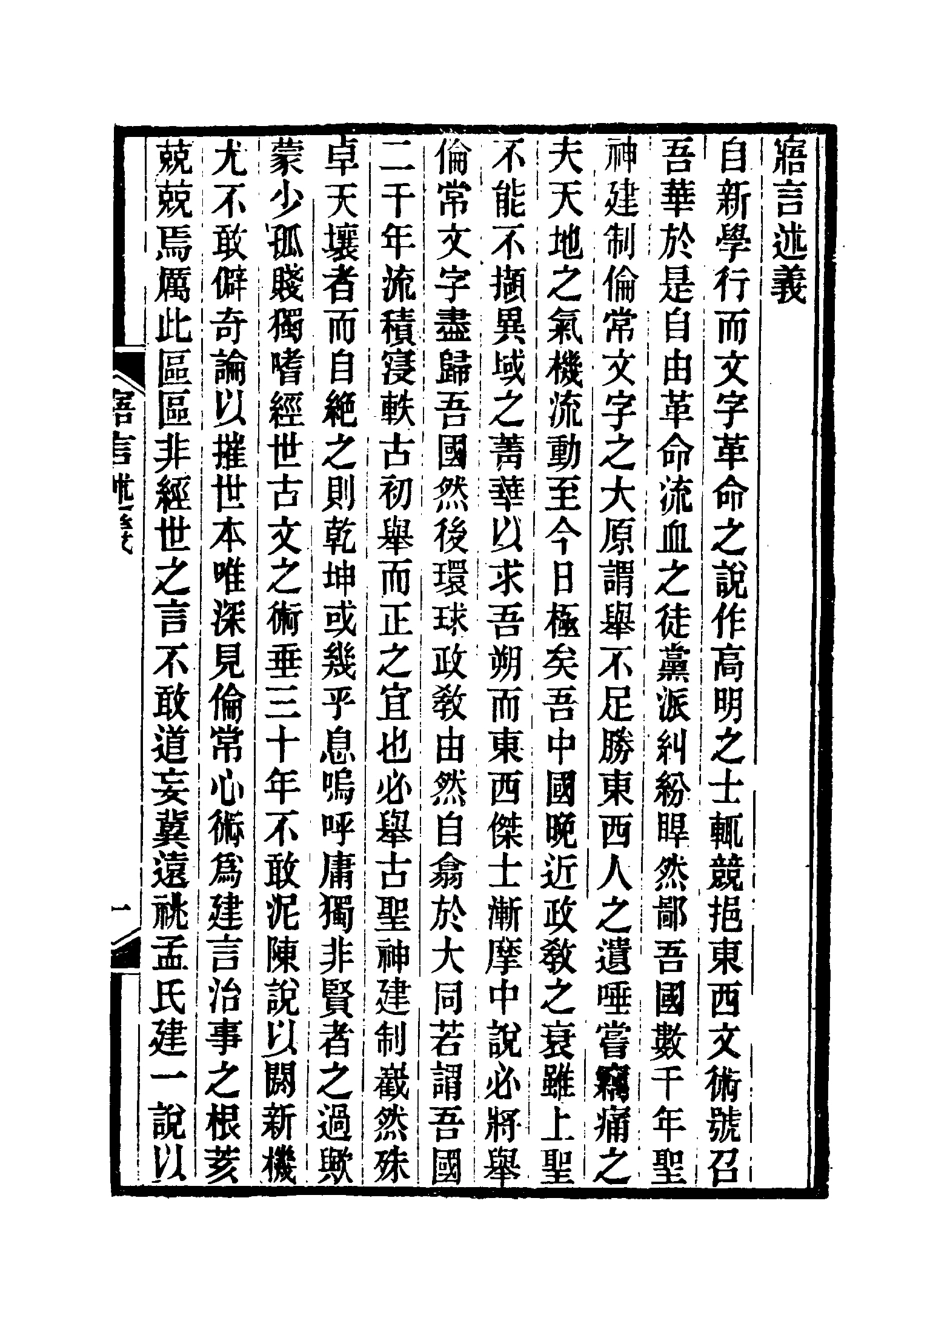 寤言述義
自新學行而文字革命之說作高明之士輒競挹東西文術號召
吾華於是自由革命流血之徒黨派糾紛睅然鄙吾國數千年聖
神建制倫常文字之大原謂舉不足勝東西人之遺唾嘗竊痛之
夫天地之氣機流動至今日極矣吾中國晚近政敎之衰雖上聖
不能不擷異域之菁華以求吾朔而東西傑士漸摩中說必將舉
倫常文字盡歸吾國然後環球政敎由然自翕於大同若謂吾國
二千年流積寖軼古初舉而正之宜也必舉古聖神建制截然殊
卓天壤者而自絕之則乾坤或幾乎息嗚呼庸獨非賢者之過歟
蒙少孤賤獨嗜經世古文之術垂三十年不敢泥陳說以閼新機
尤不敢僻奇論以摧世本唯深見倫常心術爲建言治事之根荄
兢兢焉厲此區區非經世之言不敢道妄冀遠祧孟氏建一說以
寤言述義
一